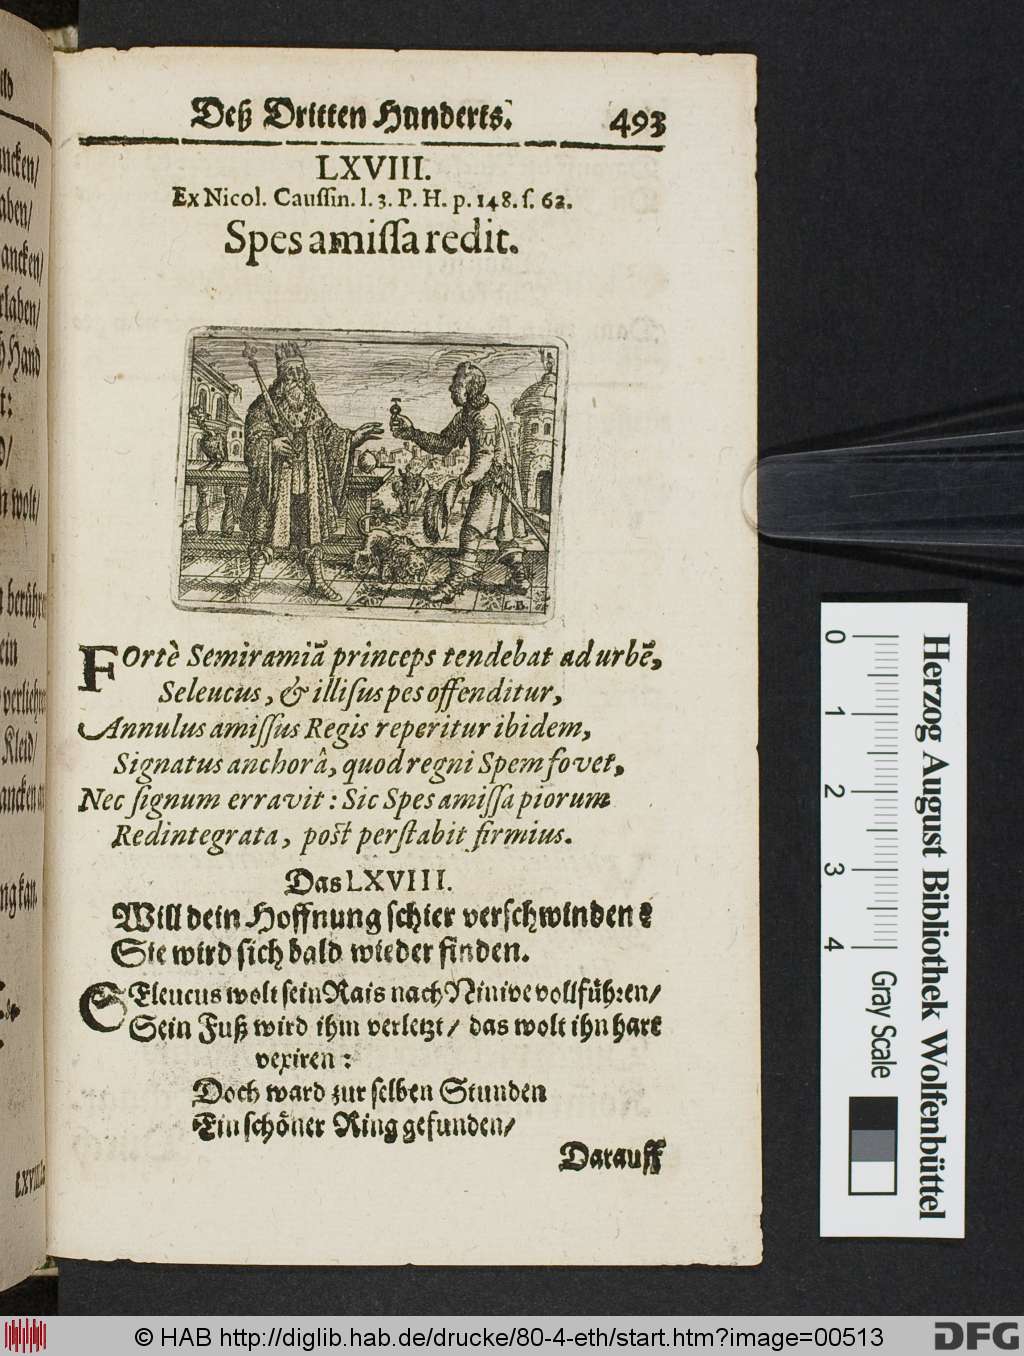 Deß Dritten Hunderts. 493
LXVIII.
Ex Nicol. Caussin. l. 3. P. H. p. 148. s. 62.
Spes amissa redit.
L.B.
FOrtè Semiramiã princeps tendebat ad urbẽ,
Seleucus, & illi sus pes offenditur,
Annulus amissus Regis reperitur ibidem,
Signatus anchorâ, quod regni Spem fovet,
Nec signum erravit: Sic Spes amissa piorum
Redintegrata, post perstabit firmius.
Das LXVIII.
Will dein Hoffnung schier verschwinden?
Sie wird sich bald wieder finden.
SEleucus wolt sein Rais nach Ninive vollführen/
Sein Fuß wird ihm verletzt/ das wolt ihn hart
vexiren:
Doch ward zur selben Stunden
Ein schöner Ring gefunden/
Darauff
ancken/
aben/
ancken/
rlaben/
Hand
t:
wolt/
berühre
ein
Kleid/
0 1 2 3 4
Herzog August Bibliothek Wolfenbüttel
Gray Scale
© HAB http://diglib.hab.de/drucke/80-4-eth/start.htm?image=00513
DFG